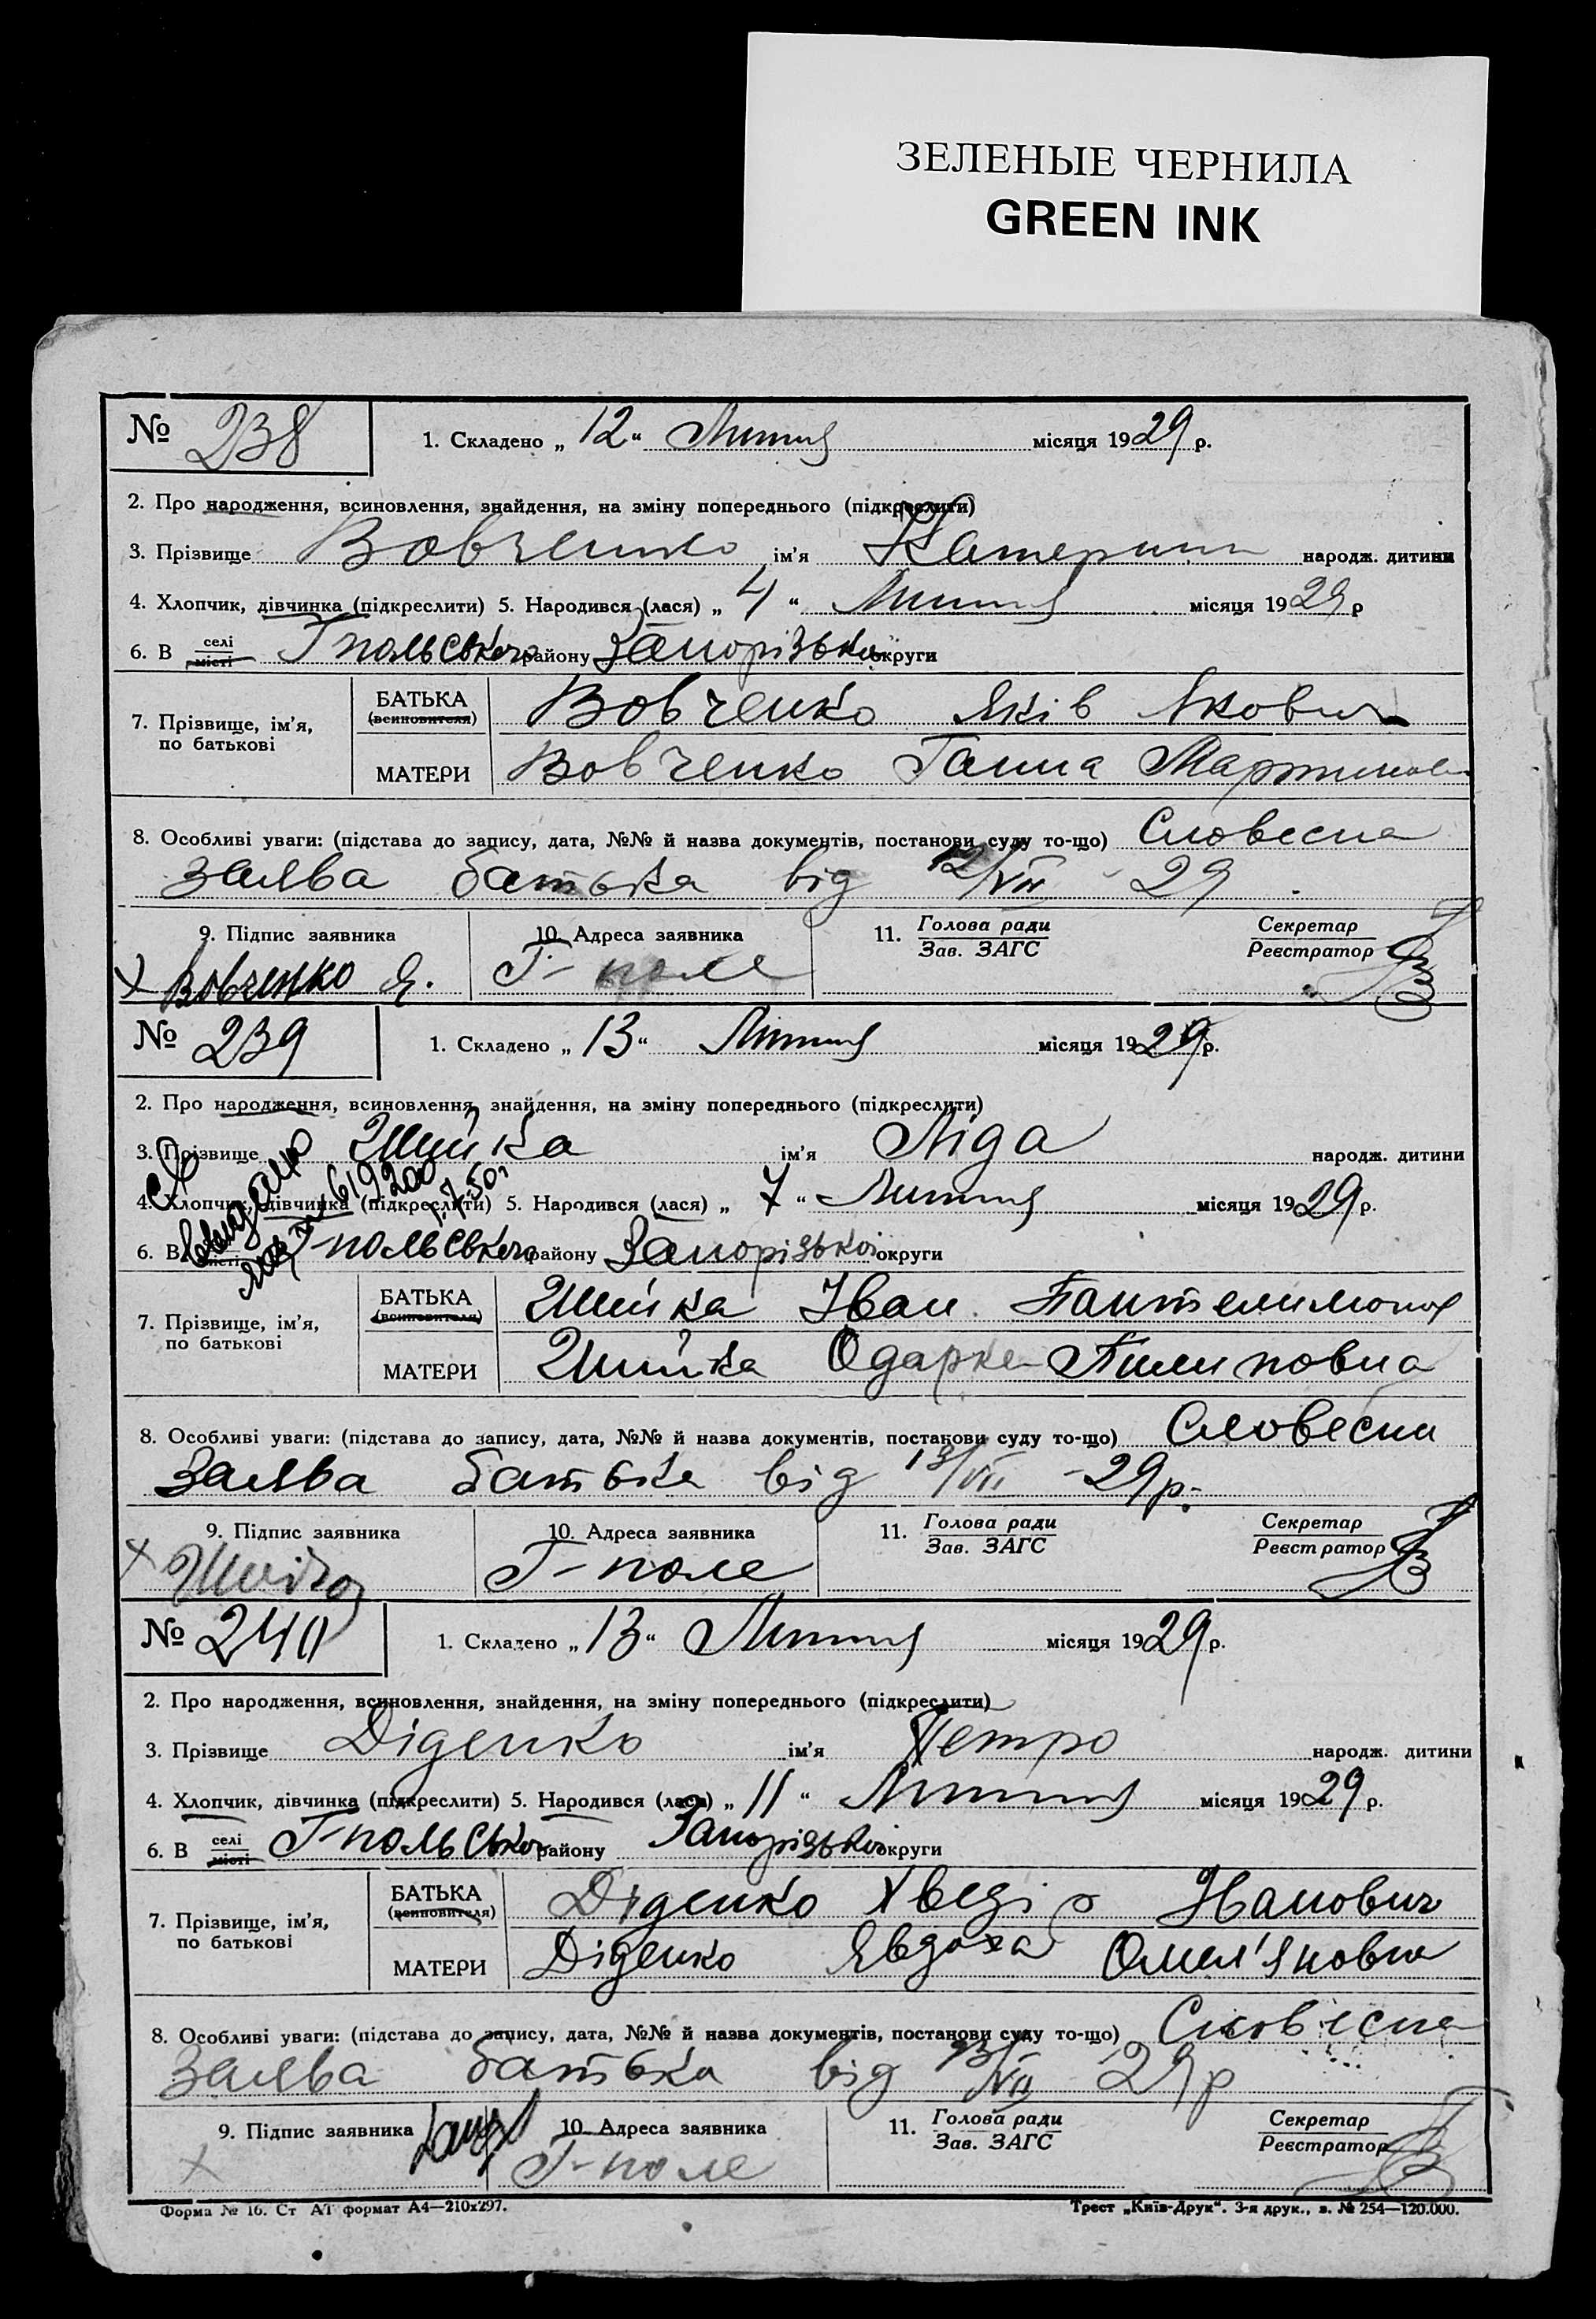 ЗЕЛЕНЫЕ ЧЕРНИЛА
GREEN INK
№ 238 1. Складено „ 12 “ Липня місяця 1929 р.
2. Про народження, всиновлення, знайдення, на зміну попереднього (підкреслити)
3. Прізвище Вовченко ім’я Катерина народж. дитини
4. Хлопчик, дівчинка (підкреслити) 5. Народився (лася) „ 4 “ Липня місяця 1929 р
6. В селі місті Гпольського району Запорізької округи
7. Прізвище, ім’я, по батькові
БАТЬКА (всиновителя) Вовченко Яків Якович
МАТЕРИ Вовченко Ганна Мартинов
8. Особливі уваги: (підстава до запису, дата, №№ й назва документів, постанови суду то-що) Словесна
заява батька від 12/VII - 29
9. Підпис заявника 10. Адреса заявника 11. Голова ради Зав. ЗАГС Секретар Реєстратор
х Вовченко Я. Г-поле
№ 239 1. Складено „ 13 “ Липня місяця 1929 р.
2. Про народження, всиновлення, знайдення, на зміну попереднього (підкреслити)
3. Прізвище Шийка ім’я Ліда народж. дитини
4. Хлопчик, дівчинка (підкреслити) 5. Народився (лася) „ 7 “ Липня місяця 1929 р.
6. В місті Г-польського району Запорізької округи
7. Прізвище, ім’я, по батькові
БАТЬКА (всиновителя) Шийка Іван Пантелимонов
МАТЕРИ Шийка Одарка Пилиповна
8. Особливі уваги: (підстава до запису, дата, №№ й назва документів, постанови суду то-що) Словесна
Заява батька від 13/VII - 29 р.
9. Підпис заявника 10. Адреса заявника 11. Голова ради Зав. ЗАГС Секретар Реєстратор
х Г-поле
№ 240 1. Складено „ 13 “ Липня місяця 1929 р.
2. Про народження, всиновлення, знайдення, на зміну попереднього (підкреслити)
3. Прізвище Діденко ім’я Петро народж. дитини
4. Хлопчик, дівчинка (підкреслити) 5. Народився (лася) „ 11 “ Липня місяця 1929 р.
6. В селі місті Г-польського району Запорізької округи
7. Прізвище, ім’я, по батькові
БАТЬКА (всиновителя) Діденко Хведір Іванович
МАТЕРИ Діденко Явдоха Омел'яновна
8. Особливі уваги: (підстава до запису, дата, №№ й назва документів, постанови суду то-що) Словесна
Заява батька від 13/VII 29 р
9. Підпис заявника 10. Адреса заявника 11. Голова ради Зав. ЗАГС Секретар Реєстратор
х Г-поле
Форма № 16. Ст АТ формат А4—210x297. Трест „Київ-Друк“. 3-я друк., з. № 254—120.000.